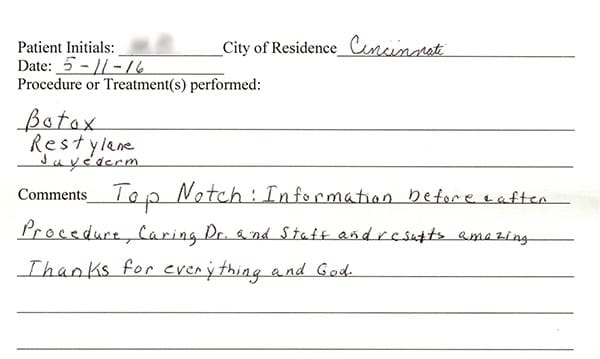 Patient Initials: City of Residence Cincinnati
Date: 5-11-16
Procedure or Treatment(s) performed:
Botox
Restylane
Juvederm
Comments Top Notch: Information before & after
Procedure, Caring Dr. and Staff and results amazing
Thanks for everything and God.